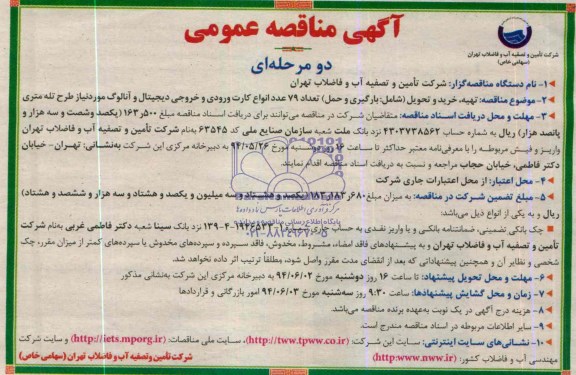 آگهی مناقصه عمومی
دو مرحله‌ای
شرکت تأمین و تصفیه آب و فاضلاب تهران
(سهامی خاص)
۱- نام دستگاه مناقصه‌گزار: شرکت تأمین و تصفیه آب و فاضلاب تهران
۲- موضوع مناقصه: تهیه، خرید و تحویل (شامل: بارگیری و حمل) تعداد ۷۹ عدد انواع کارت ورودی و خروجی دیجیتال و آنالوگ موردنیاز طرح تله متری
۳- مهلت و محل دریافت اسناد مناقصه: متقاضیان شرکت در مناقصه می‌توانند برای دریافت اسناد مناقصه مبلغ ۱۶۳٫۵۰۰ (یکصد وشصت و سه هزار و
پانصد هزار) ریال به شماره حساب ۴۳۰۳۷۳۸۵۶۲ نزد بانک ملت شعبه سازمان صنایع ملی کد ۶۳۵۴۵ به‌نام شرکت تأمین و تصفیه آب و فاضلاب تهران
واریز و فیش مربوطه را با معرفی‌نامه معتبر حداکثر تا ساعت ۱۶ مورخ ۹۴/۰۵/۲۶ به دبیرخانه مرکزی این شرکت به‌نشانی: تهران- خیابان
دکتر فاطمی، خیابان حجاب مراجعه و نسبت به دریافت اسناد مناقصه اقدام نمایند.
۴- محل اعتبار: از محل اعتبارات جاری شرکت
۵- مبلغ تضمین شرکت در مناقصه: به میزان مبلغ ۱۸۳٫۱۸۳٫۶۸۰ سه میلیون و یکصد و هشتاد و سه هزار و ششصد و هشتاد)
ریال و به یکی از انواع ذیل می‌باشد:
چک بانکی تضمینی، ضمانتنامه بانکی و یا واریز نقدی به حساب جاری نزد بانک سینا شعبه دکتر فاطمی غربی به‌نام شرکت
تأمین و تصفیه آب و فاضلاب تهران و به پیشنهادهای فاقد امضاء، مشروط، مخدوش، فاقد سپرده و سپرده‌های مخدوش یا سپرده‌های کمتر از میزان مقرر، چک
شخصی و نظایر آن و همچنین پیشنهاداتی که بعد از انقضای مدت مقرر واصل شود، مطلقاً ترتیب اثر داده نخواهد شد.
۶- مهلت و محل تحویل پیشنهاد: تا ساعت ۱۶ روز دوشنبه مورخ ۹۴/۰۶/۰۲ به دبیرخانه مرکزی این شرکت به‌نشانی مذکور
۷- زمان و محل گشایش پیشنهادها: ساعت ۹:۳۰ روز سه‌شنبه مورخ ۹۴/۰۶/۰۳ امور بازرگانی و قراردادها
۸- هزینه درج آگهی در یک نوبت به‌عهده برنده مناقصه می‌باشد.
۹- سایر اطلاعات مربوطه در اسناد مناقصه مندرج است.
۱۰- نشانی‌های سایت اینترنتی: سایت این شرکت: (http://tww.tpww.co.ir)، سایت ملی مناقصات: (http://iets.mporg.ir) و سایت شرکت
مهندسی آب و فاضلاب کشور: (http:www.nww.ir)
شرکت تأمین و تصفیه آب و فاضلاب تهران (سهامی خاص)